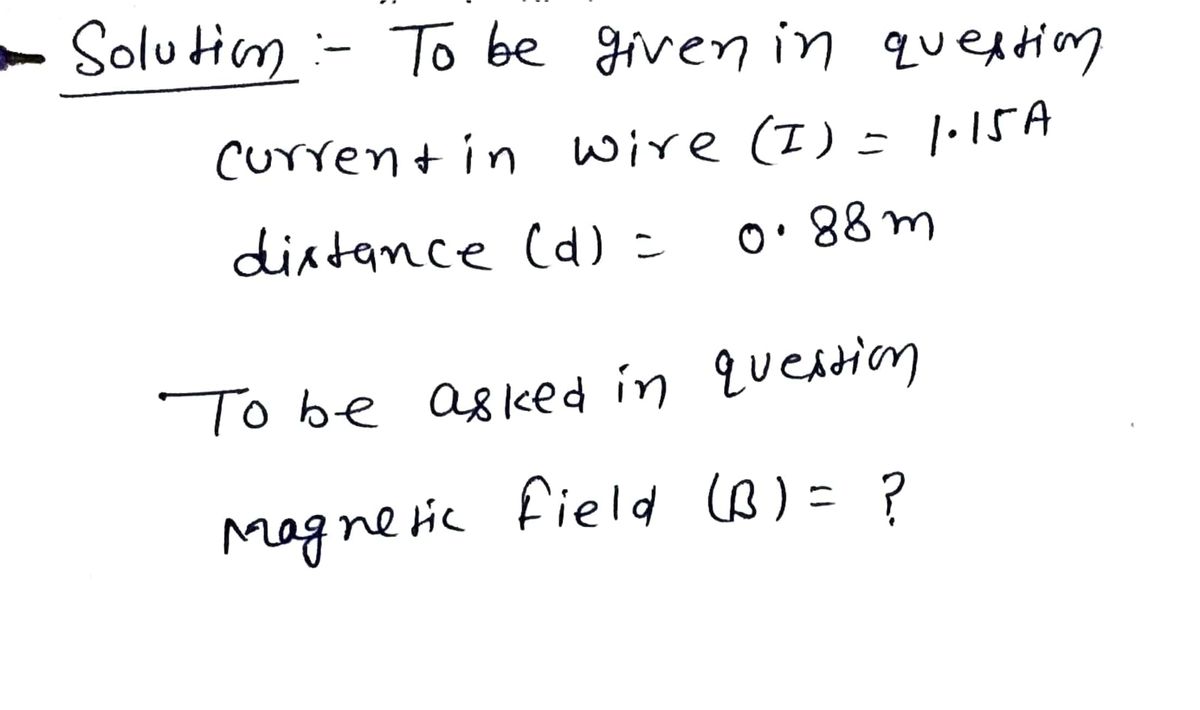 Solution :- To be given in question
current in wire (I) = 1.15A
distance (d) = 0.88m
To be asked in question
Magnetic field (B) = ?